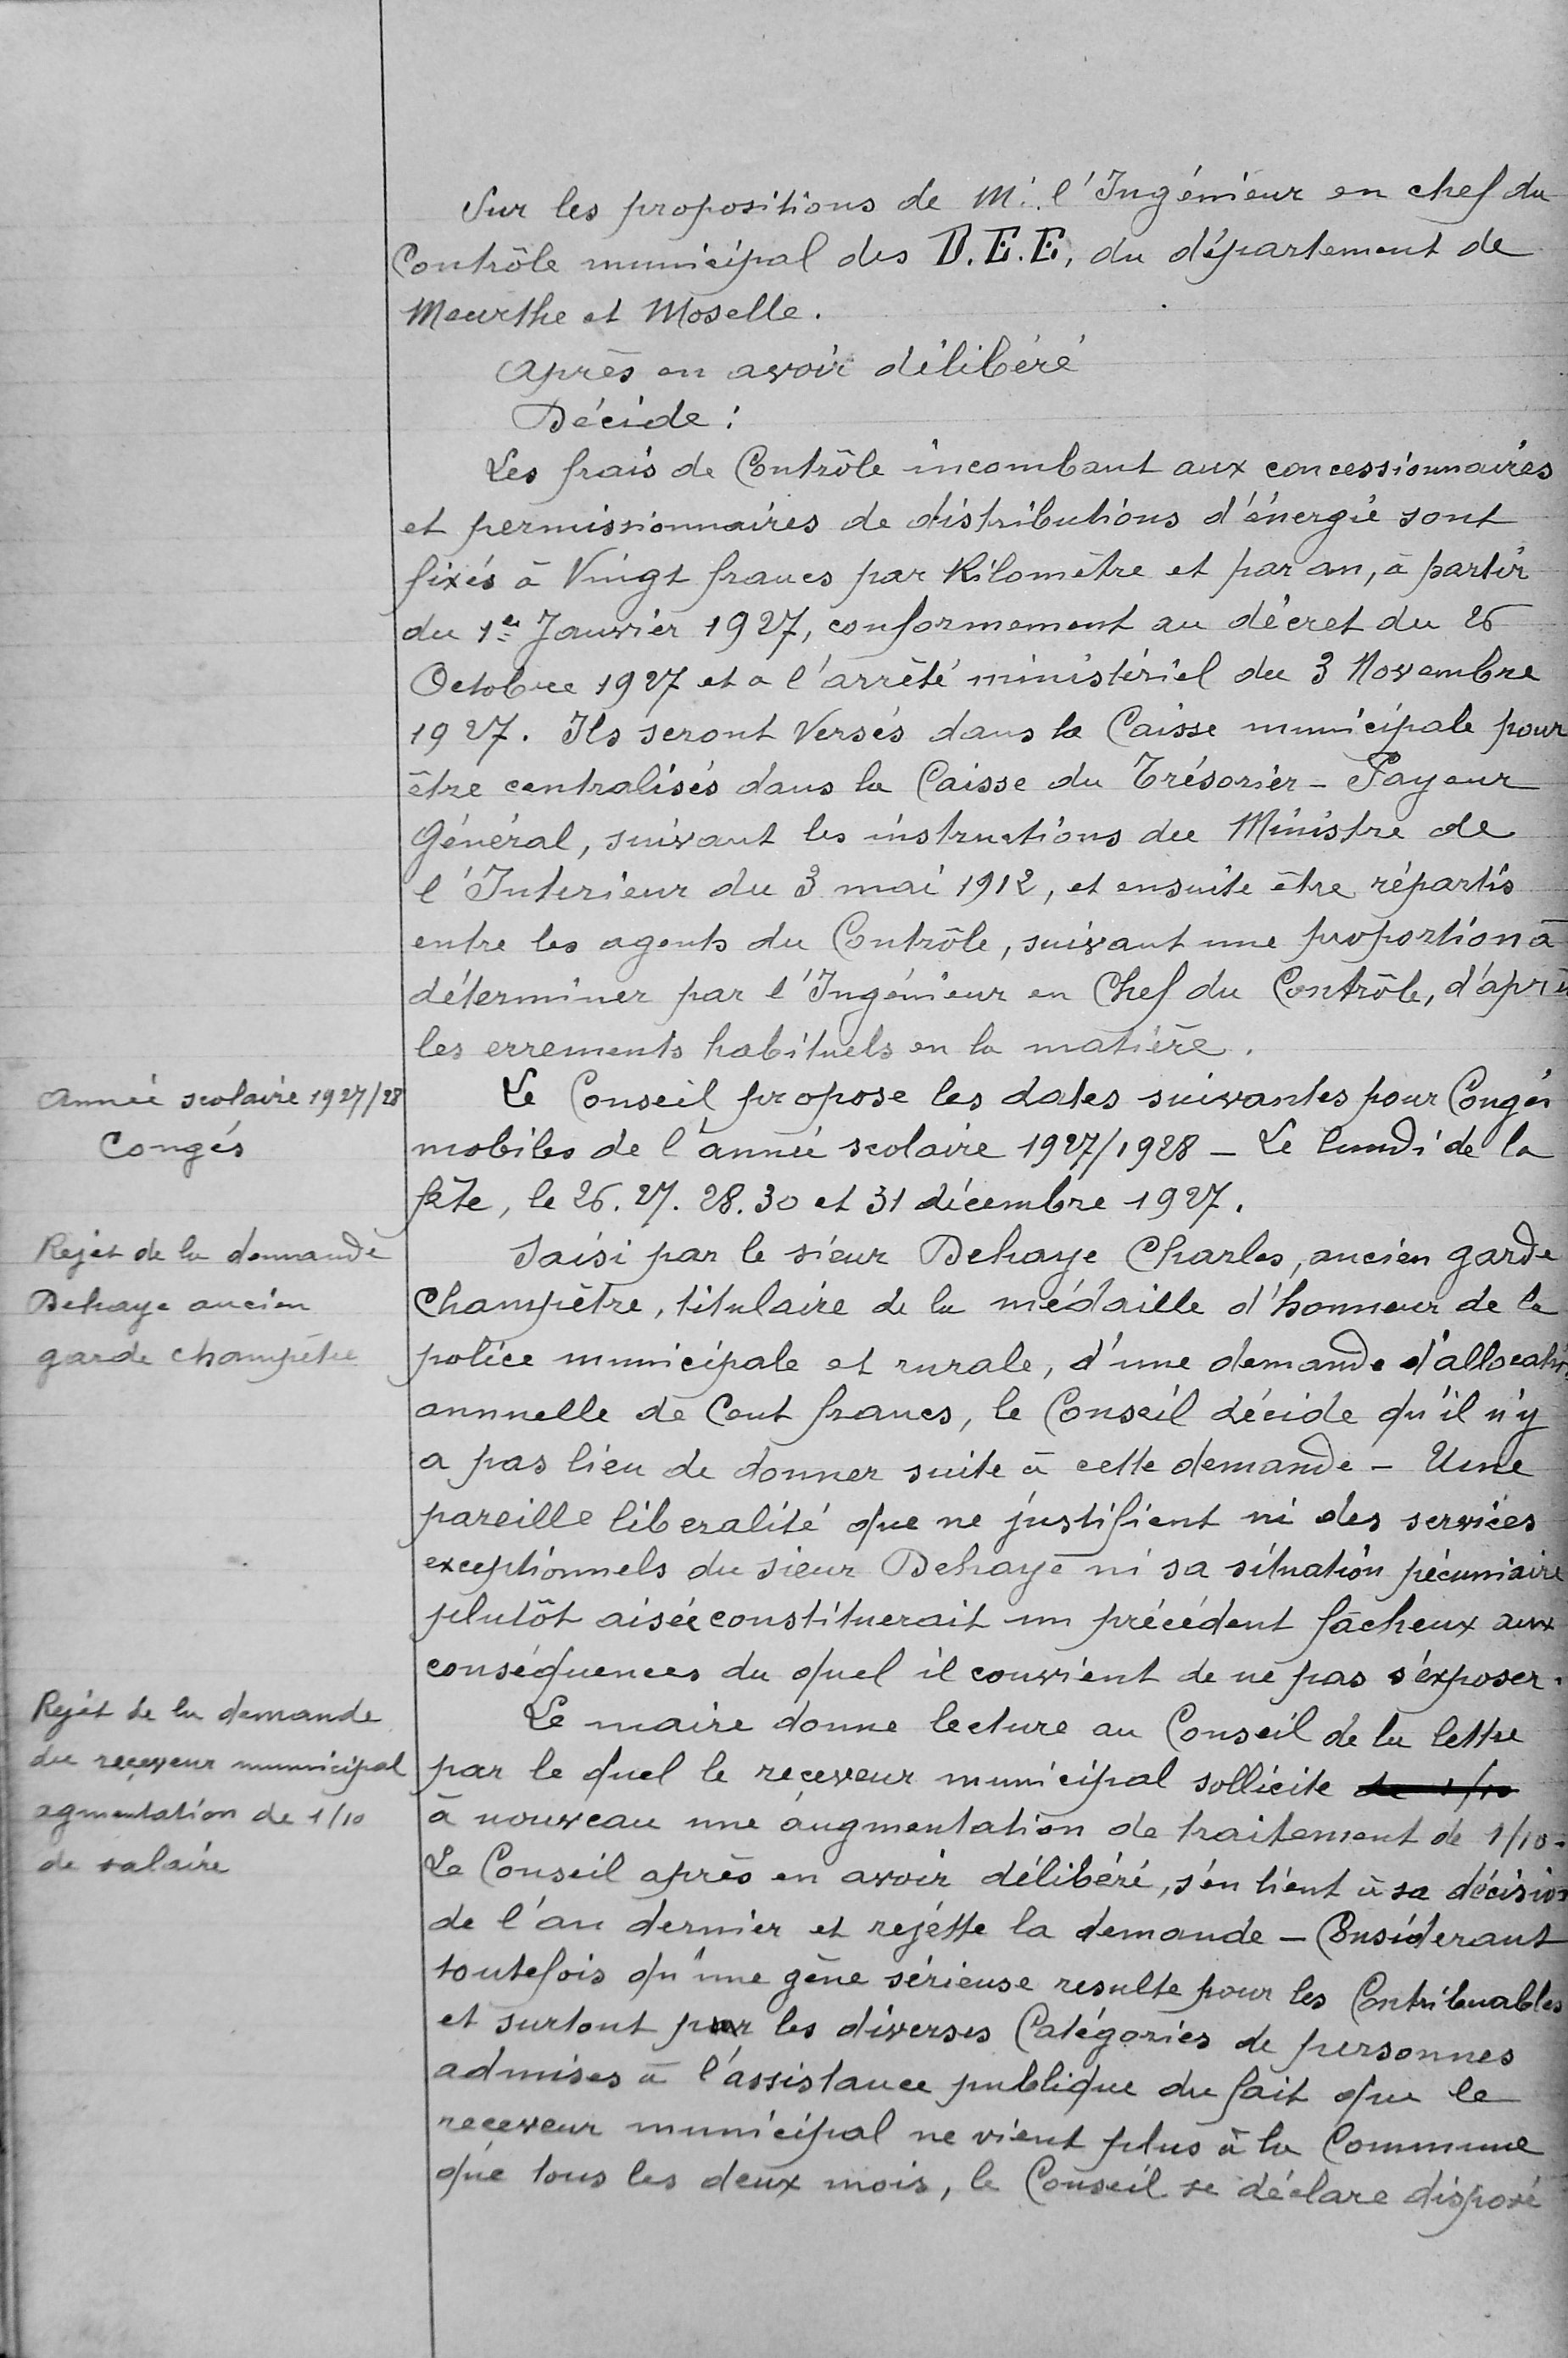 Sur les propositions de Mr. l'Ingénieur en chef du
Contrôle municipal des D.E.E. du département de
Meurthe et Moselle.
Après en avoir délibéré
Décide :
Les frais de Contrôle incombant aux concessionnaires
et permissionnaires de distributions d'énergie sont
fixés à Vingt francs par Kilomètre et par an, à partir
du 1er Janvier 1927, conformement au décret du 26
Octobre 1927 et a l'arrêté ministériel du 3 Novembre
1927. Ils seront Versés dans la Caisse municipale pour
être centralisés dans la Caisse du Trésorier - Payeur
Général, suivant les instructions du Ministre de
l'Interieur du 3 mai 1912, et ensuite être répartis
entre les agents du Contrôle, suivant une proportion à
déterminer par l'Ingénieur en Chef du Contrôle, d'après
les errements habituels en la matière.
Année scolaire 1927/28
Congés
Le Conseil propose les dates suivantes pour Congés
mobiles de l'année scolaire 1927/1928 - Le lundi de la
fête, le 26. 27. 28. 30 et 31 décembre 1927.
Rejet de la demande
Dehaye ancien
garde champêtre
Saisi par le sieur Dehaye Charles, ancien garde
Champêtre, titulaire de la médaille d'honneur de la
police municipale et rurale, d'une demande d'allocation
annuelle de Cent francs, le Conseil décide qu'il n'y
a pas lieu de donner suite à cette demande - Une
pareille liberalité que ne justifient ni des services
exceptionnels du sieur Dehaye ni sa situation pécuniaire
plutôt aisée constituerait un précédent fâcheux aux
conséquences du quel il convient de ne pas s'exposer.
Rejet de la demande
du receveur municipal
agmentation de 1/10
de salaire
Le maire donne lecture au Conseil de la lettre
par le quel le receveur municipal sollicite de 1/10
à nouveau une augmentation de traitement de 1/10 -
Le Conseil après en avoir délibéré, s'en tient à sa décision
de l'an dernier et rejette la demande - Considerant
toutefois qu'une gêne sérieuse resulte pour les Contribuables
et surtout pour les diverses Catégories de personnes
admises à l'assistance publique du fait que le
receveur municipal ne vient plus à la Commune
que tous les deux mois, le Conseil se déclare disposé